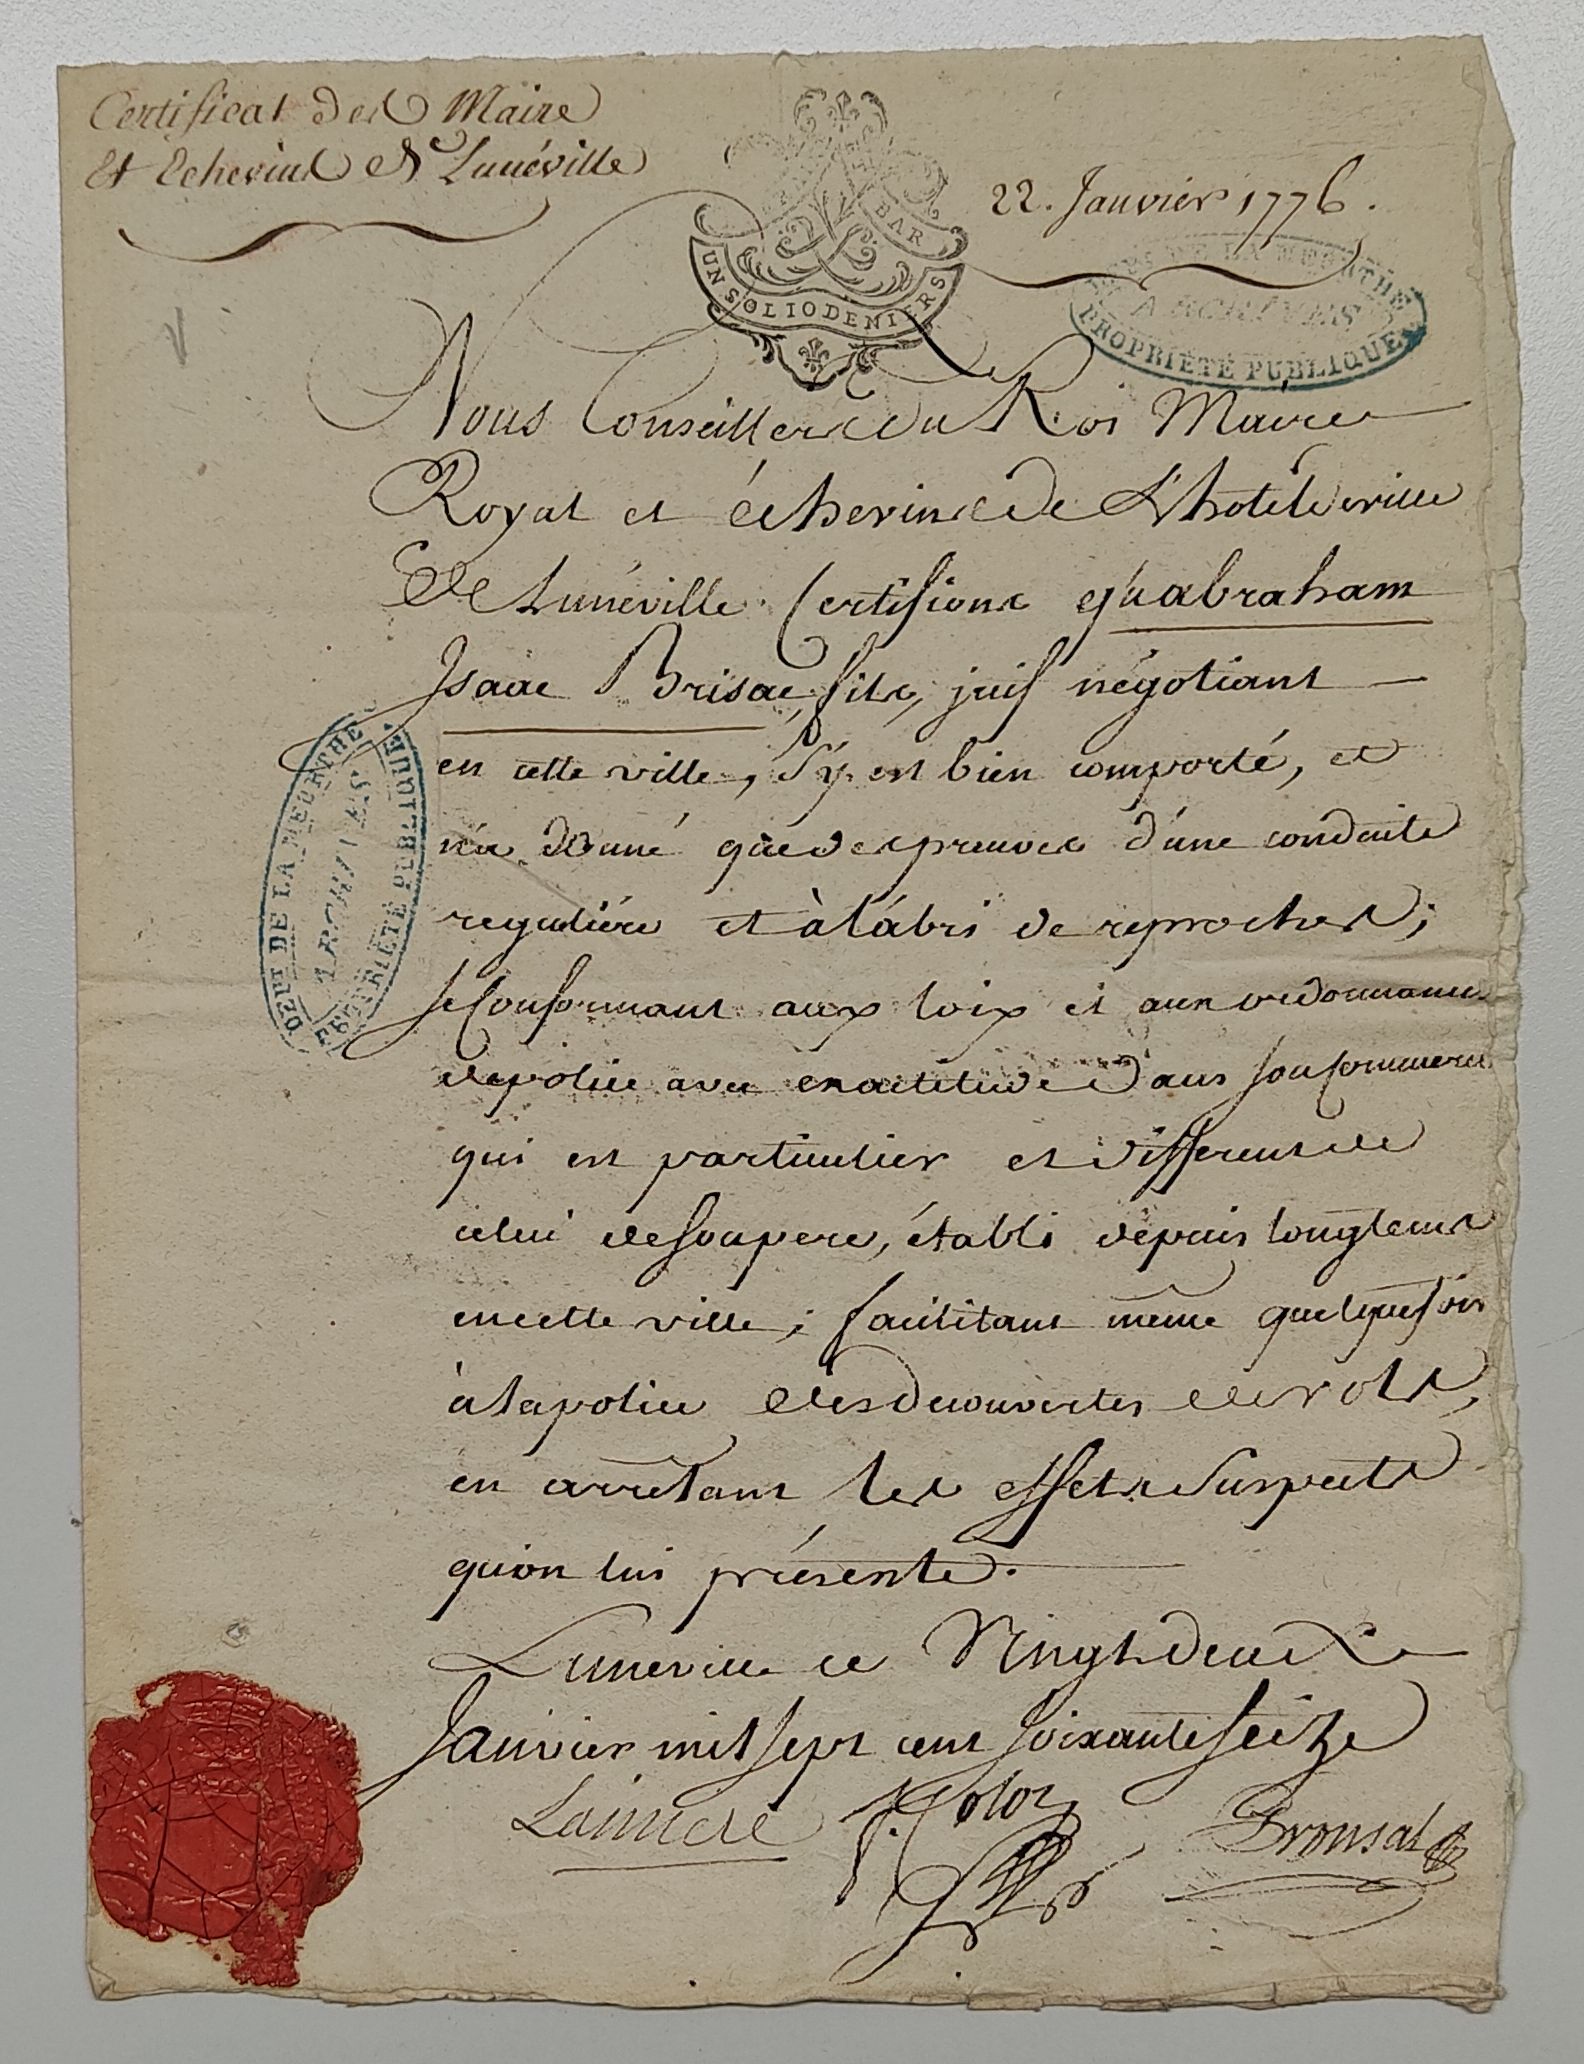 Certificat des Maire
Et Echevins de Lunéville
22. Janvier 1776.
BAR
UN SOL 10 DENIERS
DEPT DE LA MEURTHE
ARCHIVES
PROPRIÉTÉ PUBLIQUE
Nous Conseillers du Roi Maire
Royal et échevins de L'hotel de ville
de Lunéville Certifions qu'abraham
Isaac Brisac, fils, juif négotiant
en cette ville, s'y est bien comporté, et
n'a donné que des preuves d'une conduite
reguliére et à l'abri de reproches;
se Conformant aux loix et aux ordonnances
de police avec exactitude dans son Commerce
qui est particulier et different de
celui de son pere, établi depuis longtems
en cette ville; facilitant même quelquefois
à la police des decouvertes de vols,
en arrêtant les effets Suspects
qu'on lui présente.
Luneville ce Vingt deux
Janvier mil sept cent soixante seize
DEPT DE LA MEURTHE
ARCHIVES
PROPRIÉTÉ PUBLIQUE